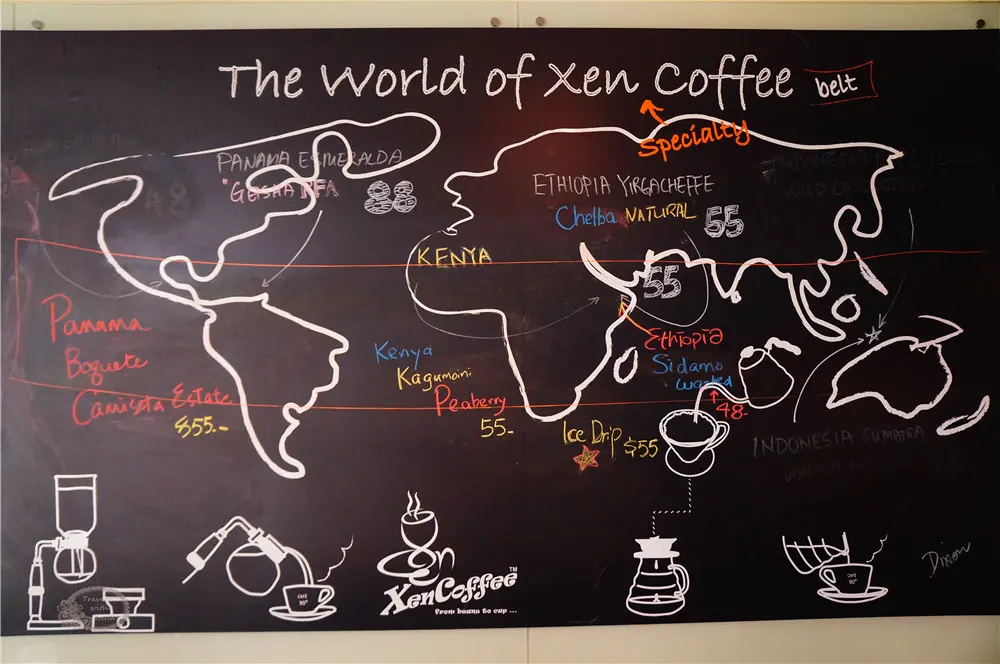 The World of Xen Coffee belt
Specialty
PANAMA ESMERALDA
"GEISHA
88
48
ETHIOPIA YIRGACHEFFE
Chelba NATURAL 55
KENYA
55
Panama
Boquete
Camiseta Estate
$55.-
Kenya
Kagumoini
Peaberry
55-
Ethiopia
Sidamo
washed
48-
Ice Drip $55
INDONESIA SUMATRA
CAFE
90°
XenCoffee™
from beans to cup ...
CAFE
90°
Dixon
Travel
with